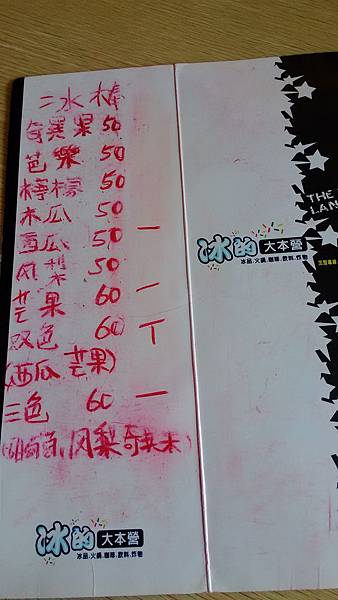 冰棒
奇異果 50
芭樂 50
檸檬 50
木瓜 50
西瓜 50 一
鳳梨 50
芒果 60 一
双色 60 T
(西瓜 芒果)
三色 60 一
鳳梨奇異果)
冰的大本營
冰品.火鍋.咖啡.飲料.炸物
冰的大本營
冰品.火鍋.咖啡.飲料.炸物
THE
LAN